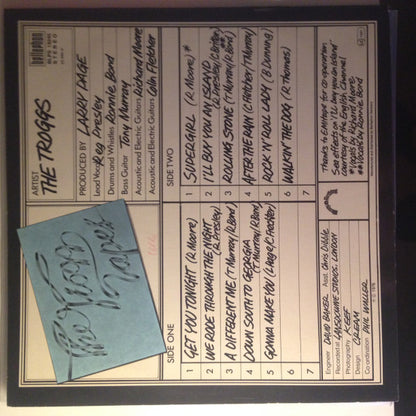 ARTIST
THE TROGGS
PRODUCED BY LARRY PAGE
Lead Vocal Reg Presley
Drums and Whistles Ronnie Bond
Bass Guitar Tony Murray
Acoustic and Electric Guitars Richard Moore
Acoustic and Electric Guitars Colin Fletcher
The Trogg
Tapes
SIDE ONE
1 GET YOU TONIGHT (R. Moore)
2 WE RODE THROUGH THE NIGHT
(R. Presley)
3 A DIFFERENT ME (T. Murray/R. Bond)
4 DOWN SOUTH TO GEORGIA
(T. Murray/R. Bond)
5 GONNA MAKE YOU (L. Page/C. Frechter)
6
7
SIDE TWO
1 SUPERGIRL (R. Moore)*
2 I'LL BUY YOU AN ISLAND
(R. Presley/C. Britton)
3 ROLLING STONE (T. Murray/R. Bond)
4 AFTER THE RAIN (C. Fletcher/T. Murray)
5 ROCK 'N' ROLL LADY (B. Dunning)
6 WALKIN' THE DOG (R. Thomas)
7
Engineer DAVID BAKER Asst. Chris Dibble
Recorded at LANSDOWNE STUDIOS, LONDON
Photography KEEF
Design CREAM
Co-ordination PHIL WALLER
Sea effects on "I'll buy you an island"
courtesy of the English Channel
*Vocals by Richard Moore
**Vocals by Ronnie Bond